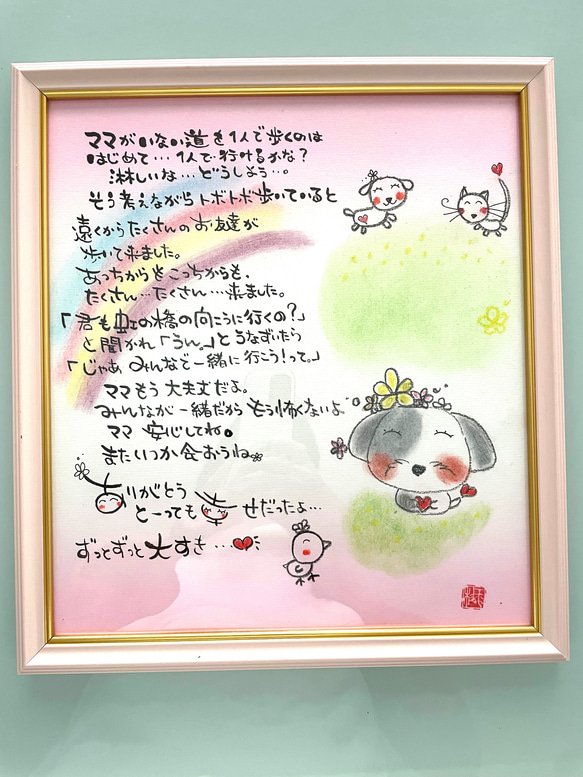 ママがいない道を1人で歩くのは
はじめて…1人で行けるかな?
淋しいな…どうしよう…。
そう考えながらトボトボ歩いていると
遠くからたくさんのお友達が
歩いて来ました。
あっちからもこっちからも、
たくさん…たくさん…来ました。
「君も虹の橋の向こうに行くの?」
と聞かれ「うん。」とうなずいたら
「じゃあみんなで一緒に行こう!って。」
ママもう大丈夫だよ。
みんなが一緒だからもう怖くないよ。
ママ安心してね。
またいつか会おうね
ありがとう
とーっても幸せだったよ…
ずっとずっと大すき…